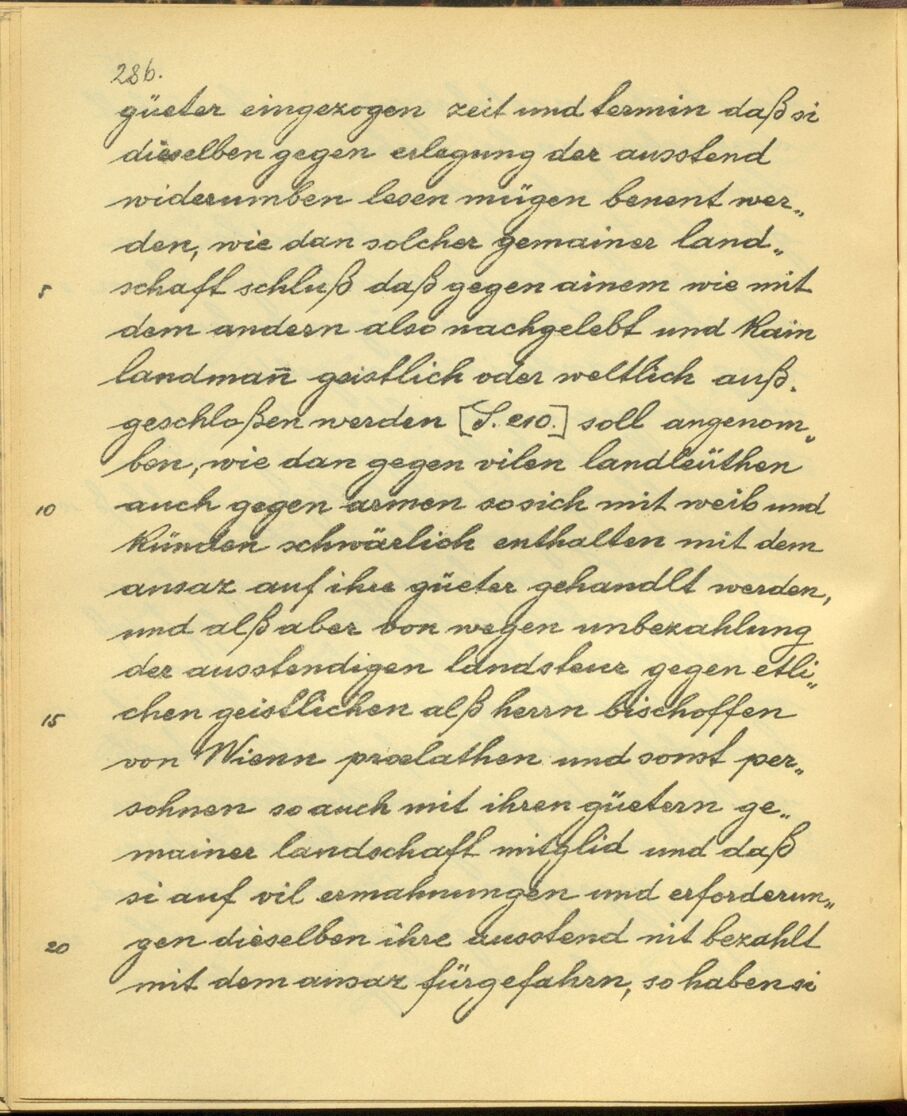 286.
güeter eingezogen zeit und termin daß si
dieselben gegen erlegung der ausstend
widerumben lesen mügen benent wer„
den, wie dan solcher gemainer land„
5 schaft schluß daß gegen ainem wie mit
dem andern also nachgelebt und kain
landmañ geistlich oder weltlich auß„
geschloßen werden [S. 210.] soll angenom„
ben, wie dan gegen vilen landleüthen
10 auch gegen armen so sich mit weib und
künden schwärlich enthalten mit dem
ansaz auf ihre güeter gehandlt werden,
und alß aber von wegen unbezahlung
der ausstendigen landsteur gegen etli„
15 chen geistlichen alß herrn bischoffen
von Wienn praelathen und sonst per„
sohnen so auch mit ihren güetern ge„
mainer landschaft mitglid und daß
si auf vil ermahnungen und erforderun„
20 gen dieselben ihre ausstend nit bezahlt
mit dem ansaz fürgefahrn, so haben si